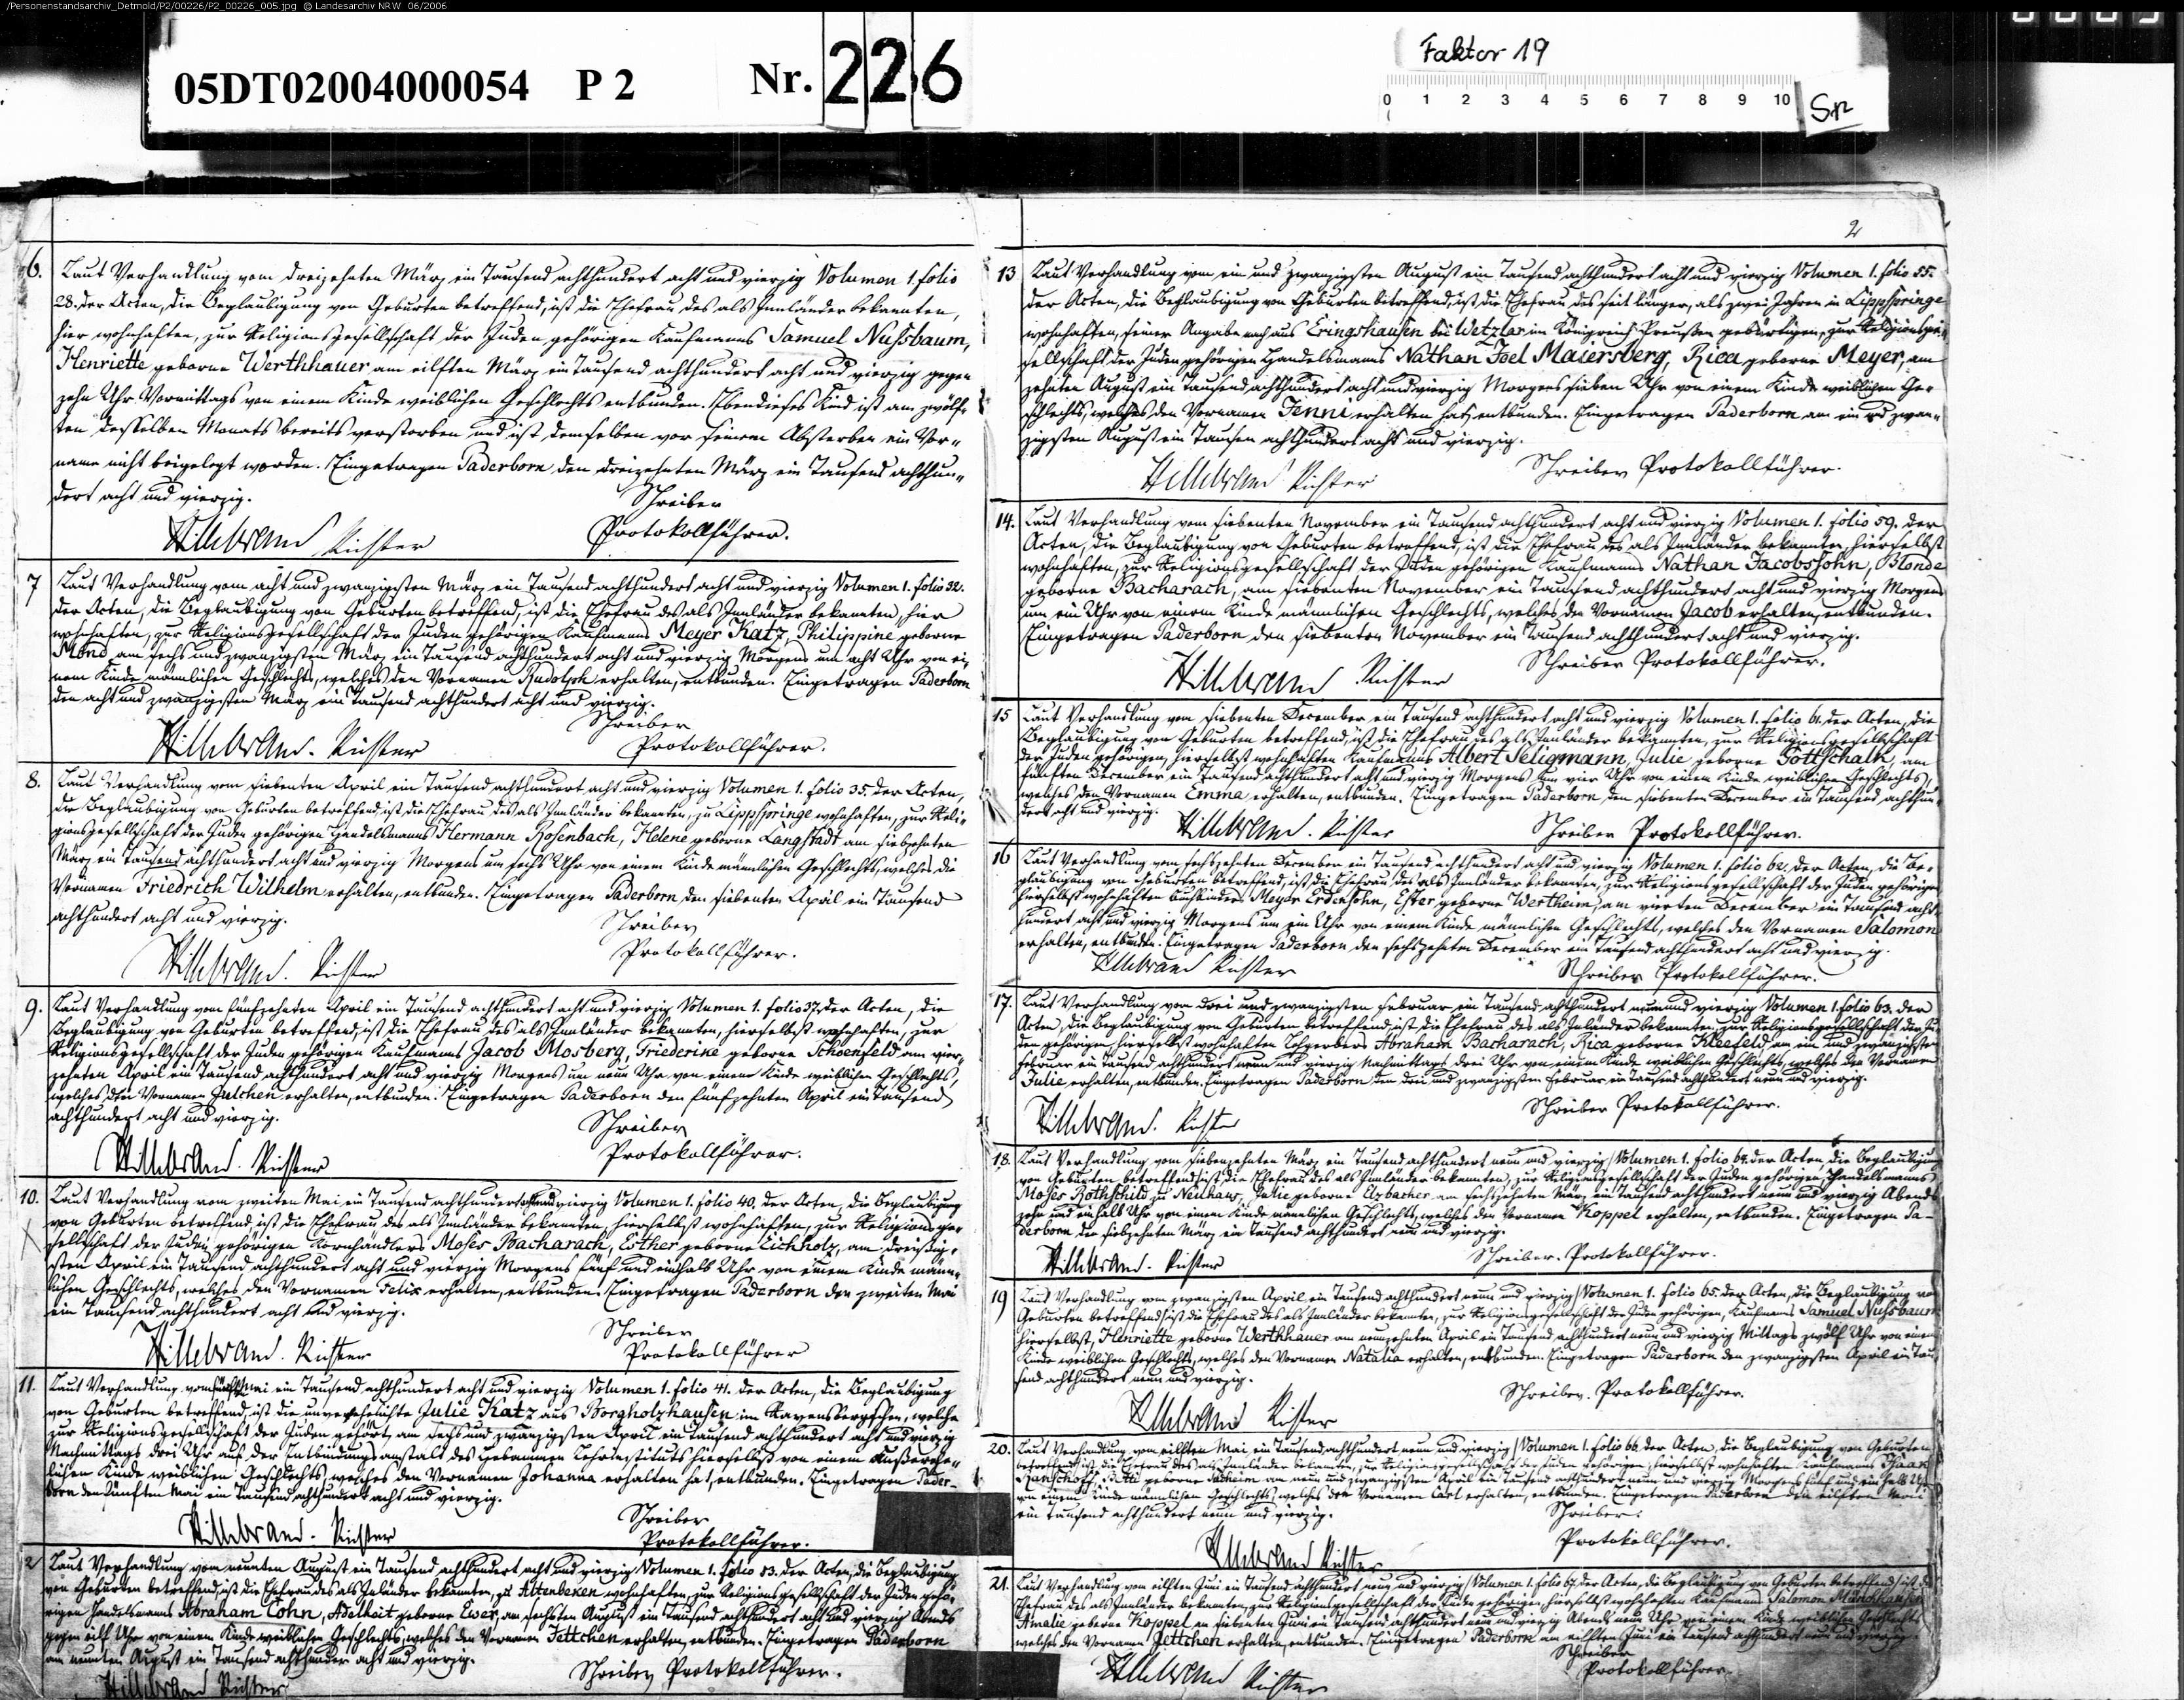 /Personenstandsarchiv_Detmold/P2/00226/P2_00226_005.jpg © Landesarchiv NRW 06/2006
05DT02004000054 P 2 Nr. 226
Faktor 19
0 1 2 3 4 5 6 7 8 9 10
Sn
6. Laut Verhandlung vom dreizehnten März ein Tausend achthundert acht und vierzig Volumen 1. folio
28. der Acten, die Beglaubigung von Geburten betreffend, ist die Ehefrau des als Innländer bekannten,
hier wohnhaften, zur Religionsgesellschaft der Juden gehörigen Kaufmanns Samuel Nußbaum,
Henriette geborne Werthhauer am eilften März ein Tausend achthundert acht und vierzig gegen
zehn Uhr Vormittags von einem Kinde weiblichen Geschlechts entbunden. Ebendieses Kind ist am zwölf-
ten desselben Monats bereits verstorben und ist demselben vor seinem Absterben ein Vor-
name nicht beigelegt worden. Eingetragen Paderborn den dreizehnten März ein Tausend achthun-
dert acht und vierzig.
Schreiber
Hillebrand Richter Protokollführer.
7 Laut Verhandlung vom acht und zwanzigsten März ein Tausend achthundert acht und vierzig Volumen 1. folio 32.
der Acten, die Beglaubigung von Geburten betreffend, ist die Ehefrau des als Innländer bekannten, hier
wohnhaften, zur Religionsgesellschaft der Juden gehörigen Kaufmanns Meyer Katz, Philippine geborne
Mond am sechs und zwanzigsten März ein Tausend achthundert acht und vierzig Morgens um acht Uhr von ei-
nem Kinde männlichen Geschlechts, welches den Vornamen Rudolph erhalten, entbunden. Eingetragen Paderborn
den acht und zwanzigsten März ein Tausend achthundert acht und vierzig.
Schreiber
Hillebrand. Richter Protokollführer.
8. Laut Verhandlung vom siebenten April ein Tausend achthundert acht und vierzig Volumen 1. folio 35. der Acten,
die Beglaubigung von Geburten betreffend, ist die Ehefrau des als Innländer bekannten, zu Lippspringe wohnhaften, zur Reli-
gionsgesellschaft der Juden gehörigen Handelsmanns Hermann Rosenbach, Helene geborne Langstadt am siebzehnten
März ein Tausend achthundert acht und vierzig Morgens um sechs Uhr von einem Kinde männlichen Geschlechts, welches die
Vornamen Friedrich Wilhelm erhalten, entbunden. Eingetragen Paderborn den siebenten April ein Tausend
achthundert acht und vierzig.
Schreiber
Hillebrand. Richter Protokollführer.
9. Laut Verhandlung vom fünfzehnten April ein Tausend achthundert acht und vierzig Volumen 1. folio 37. der Acten, die
Beglaubigung von Geburten betreffend, ist die Ehefrau des als Innländer bekannten, hierselbst wohnhaften, zur
Religionsgesellschaft der Juden gehörigen Kaufmanns Jacob Mosberg, Friederike geborne Schoenfeld am vier-
zehnten April ein Tausend achthundert acht und vierzig Morgens um neun Uhr von einem Kinde weiblichen Geschlechts,
welches den Vornamen Julchen erhalten, entbunden. Eingetragen Paderborn den fünfzehnten April ein Tausend
achthundert acht und vierzig.
Schreiber
Hillebrand. Richter Protokollführer.
10. Laut Verhandlung vom zweiten Mai ein Tausend achthundert acht und vierzig Volumen 1. folio 40. der Acten, die Beglaubigung
von Geburten betreffend, ist die Ehefrau des als Innländer bekannten, hierselbst wohnhaften, zur Religionsge-
sellschaft der Juden gehörigen Kornhändlers Moses Bacharach, Esther geborne Eichholz, am dreißig-
sten April ein Tausend achthundert acht und vierzig Morgens fünf und einhalb Uhr von einem Kinde männ-
lichen Geschlechts, welches den Vornamen Felix erhalten, entbunden. Eingetragen Paderborn den zweiten Mai
ein Tausend achthundert acht und vierzig.
Schreiber
Hillebrand. Richter Protokollführer
11. Laut Verhandlung vom Mai ein Tausend achthundert acht und vierzig Volumen 1. folio 41. der Acten, die Beglaubigung
von Geburten betreffend, ist die unverehelichte Julie Katz aus Borgholzhausen im Ravensbergschen, welche
zur Religionsgesellschaft der Juden gehört, am sechs und zwanzigsten April ein Tausend achthundert acht und vierzig
Nachmittags drei Uhr auf der Entbindungsanstalt des Hebammen Lehrinstituts hierselbst von einem außerehe-
lichen Kinde weiblichen Geschlechts, welches den Vornamen Johanna erhalten hat, entbunden. Eingetragen Pader-
born den fünften Mai ein Tausend achthundert acht und vierzig.
Schreiber
Hillebrand. Richter Protokollführer.
2 Laut Verhandlung vom neunten August ein Tausend achthundert acht und vierzig Volumen 1. folio 53. der Acten, die Beglaubigung
von Geburten betreffend, ist die Ehefrau des als Inländer bekannten, zu Altenbeken wohnhaften, zur Religionsgesellschaft der Juden gehö-
rigen Handelsmanns Abraham Cohn, Adelheit geborne Ewer, am sechsten August ein Tausend achthundert acht und vierzig Abends
gegen eilf Uhr von einem Kinde weiblichen Geschlechts, welches den Vornamen Jettchen erhalten, entbunden. Eingetragen Paderborn
am neunten August ein Tausend achthundert acht und vierzig.
Schreiber Protokollführer.
Hillebrand Richter
2
13 Laut Verhandlung vom ein und zwanzigsten August ein Tausend achthundert acht und vierzig Volumen 1. folio 55.
der Acten, die Beglaubigung von Geburten betreffend, ist die Ehefrau des seit länger, als zwei Jahren in Lippspringe
wohnhaften, seiner Angabe nach aus Eringshausen bei Wetzlar im Königreich Preußen gebürtigen, zur Religionsge-
sellschaft der Juden gehörigen Handelsmanns Nathan Joel Maiersberg, Rica geborne Meyer, am
zehnten August ein Tausend achthundert acht und vierzig Morgens sieben Uhr von einem Kinde weiblichen Ge-
schlechts, welches den Vornamen Jenni erhalten hat, entbunden. Eingetragen Paderborn am ein und zwan-
zigsten August ein Tausen achthundert acht und vierzig.
Hillebrand Richter Schreiber Protokollführer.
14. Laut Verhandlung vom siebenten November ein Tausend achthundert acht und vierzig Volumen 1. folio 59. der
Acten, die Beglaubigung von Geburten betreffend, ist die Ehefrau des als Innländer bekannten, hierselbst
wohnhaften, zur Religionsgesellschaft der Juden gehörigen Kaufmanns Nathan Jacobssohn, Blonde
geborne Bacharach, am siebenten November ein Tausend achthundert acht und vierzig Morgens
um ein Uhr von einem Kinde männlichen Geschlechts, welches den Vornamen Jacob erhalten, entbunden.
Eingetragen Paderborn den siebenten November ein Tausend achthundert acht und vierzig.
Hillebrand Richter Schreiber Protokollführer.
15 Laut Verhandlung vom siebenten December ein Tausend achthundert acht und vierzig Volumen 1. folio 61. der Acten, die
Beglaubigung von Geburten betreffend, ist die Ehefrau des als Innländer bekannten, zur Religionsgesellschaft
der Juden gehörigen, hierselbst wohnhaften Kaufmanns Albert Seligmann, Julie geborne Gottschalk, am
fünften December ein Tausend achthundert acht und vierzig Morgens um vier Uhr von einem Kinde weiblichen Geschlechts,
welches den Vornamen Emma erhalten, entbunden. Eingetragen Paderborn den siebenten December ein Tausend achthun-
dert acht und vierzig.
Hillebrand. Richter Schreiber Protokollführer.
16 Laut Verhandlung vom sechszehnten December ein Tausend achthundert acht und vierzig Volumen 1. folio 62. der Acten, die Be-
glaubigung von Geburten betreffend, ist die Ehefrau des als Innländer bekannten, zur Religionsgesellschaft der Juden gehörigen,
hierselbst wohnhaften Buchbinders Meyer Erdensohn, Ester geborne Wertheim, am vierten December ein Tausend acht-
hundert acht und vierzig Morgens um ein Uhr von einem Kinde männlichen Geschlechts, welches den Vornamen Salomon
erhalten, entbunden. Eingetragen Paderborn den sechszehnten December ein Tausend achthundert acht und vierzig.
Hillebrand Richter Schreiber Protokollführer.
17. Laut Verhandlung vom drei und zwanzigsten Februar ein Tausend achthundert neun und vierzig Volumen 1. folio 63. der
Acten, die Beglaubigung von Geburten betreffend, ist die Ehefrau des als Inländer bekannten, zur Religionsgesellschaft der Ju-
den gehörigen hierselbst wohnhaften Lohgerbers Abraham Bacharach, Rica geborne Kleefeld, am ein und zwanzigsten
Februar ein Tausend achthundert neun und vierzig Nachmittags drei Uhr von einem Kinde weiblichen Geschlechts, welches den Vornamen
Julie erhalten, entbunden. Eingetragen Paderborn den drei und zwanzigsten Februar ein Tausend achthundert neun und vierzig.
Schreiber Protokollführer.
Hillebrand. Richter
18. Laut Verhandlung vom siebenzehnten März ein Tausend achthundert neun und vierzig Volumen 1. folio 64. der Acten die Beglaubigung
von Geburten betreffend, ist die Ehefrau des als Innländer bekannten, zur Religionsgesellschaft der Juden gehörigen Handelsmanns
Moses Rothschild zu Neuhaus, Julie geborne Elzbacher am sechszehnten März ein Tausend achthundert neun und vierzig Abends
zehn und einhalb Uhr von einem Kinde männlichen Geschlechts, welches den Vornamen Koppel erhalten, entbunden. Eingetragen Pa-
derborn den siebzehnten März ein Tausend achthundert neun und vierzig.
Hillebrand. Richter Schreiber. Protokollführer.
19 Laut Verhandlung vom zwanzigsten April ein Tausend achthundert neun und vierzig Volumen 1. folio 65. der Acten, die Beglaubigung von
Geburten betreffend, ist die Ehefrau des als Innländer bekannten, zur Religionsgesellschaft der Juden gehörigen, Kaufmanns Samuel Nußbaum
hierselbst, Henriette geborne Werthhauer am neunzehnten April ein Tausend achthundert neun und vierzig Mittags zwölf Uhr von einem
Kinde weiblichen Geschlechts, welches den Vornamen Natalia erhalten, entbunden. Eingetragen Paderborn den zwanzigsten April ein Tau-
send achthundert neun und vierzig.
Hillebrand Richter Schreiber. Protokollführer.
20. Laut Verhandlung vom eilften Mai ein Tausend achthundert neun und vierzig Volumen 1. folio 66. der Acten, die Beglaubigung von Geburten
betreffend, ist die Ehefrau des als Innländer bekannten, zur Religionsgesellschaft der Juden gehörigen, hierselbst wohnhaften Kaufmanns Isaac
geborne am neun und zwanzigsten April ein Tausend achthundert neun und vierzig Morgens fünf und ein halb Uhr
von einem Kinde männlichen Geschlechts, welches den Vornamen Carl erhalten, entbunden. Eingetragen Paderborn den eilften Mai
ein Tausend achthundert neun und vierzig.
Schreiber.
Hillebrand Richter Protokollführer.
21. Laut Verhandlung vom eilften Juni ein Tausend achthundert neun und vierzig Volumen 1. folio 67. der Acten, die Beglaubigung von Geburten betreffend, ist die
Ehefrau des als Innländer bekannten, zur Religionsgesellschaft der Juden gehörigen, hierselbst wohnhaften Kaufmanns Salomon Münchhausen
Amalie geborne Koppel am siebenten Juni ein Tausend achthundert neun und vierzig Abends neun Uhr von einem Kinde weiblichen Geschlechts
welches den Vornamen Jettchen erhalten, entbunden. Eingetragen Paderborn am eilften Juni ein Tausend achthundert neun und vierzig
Schreiber
Hillebrand Richter Protokollführer.